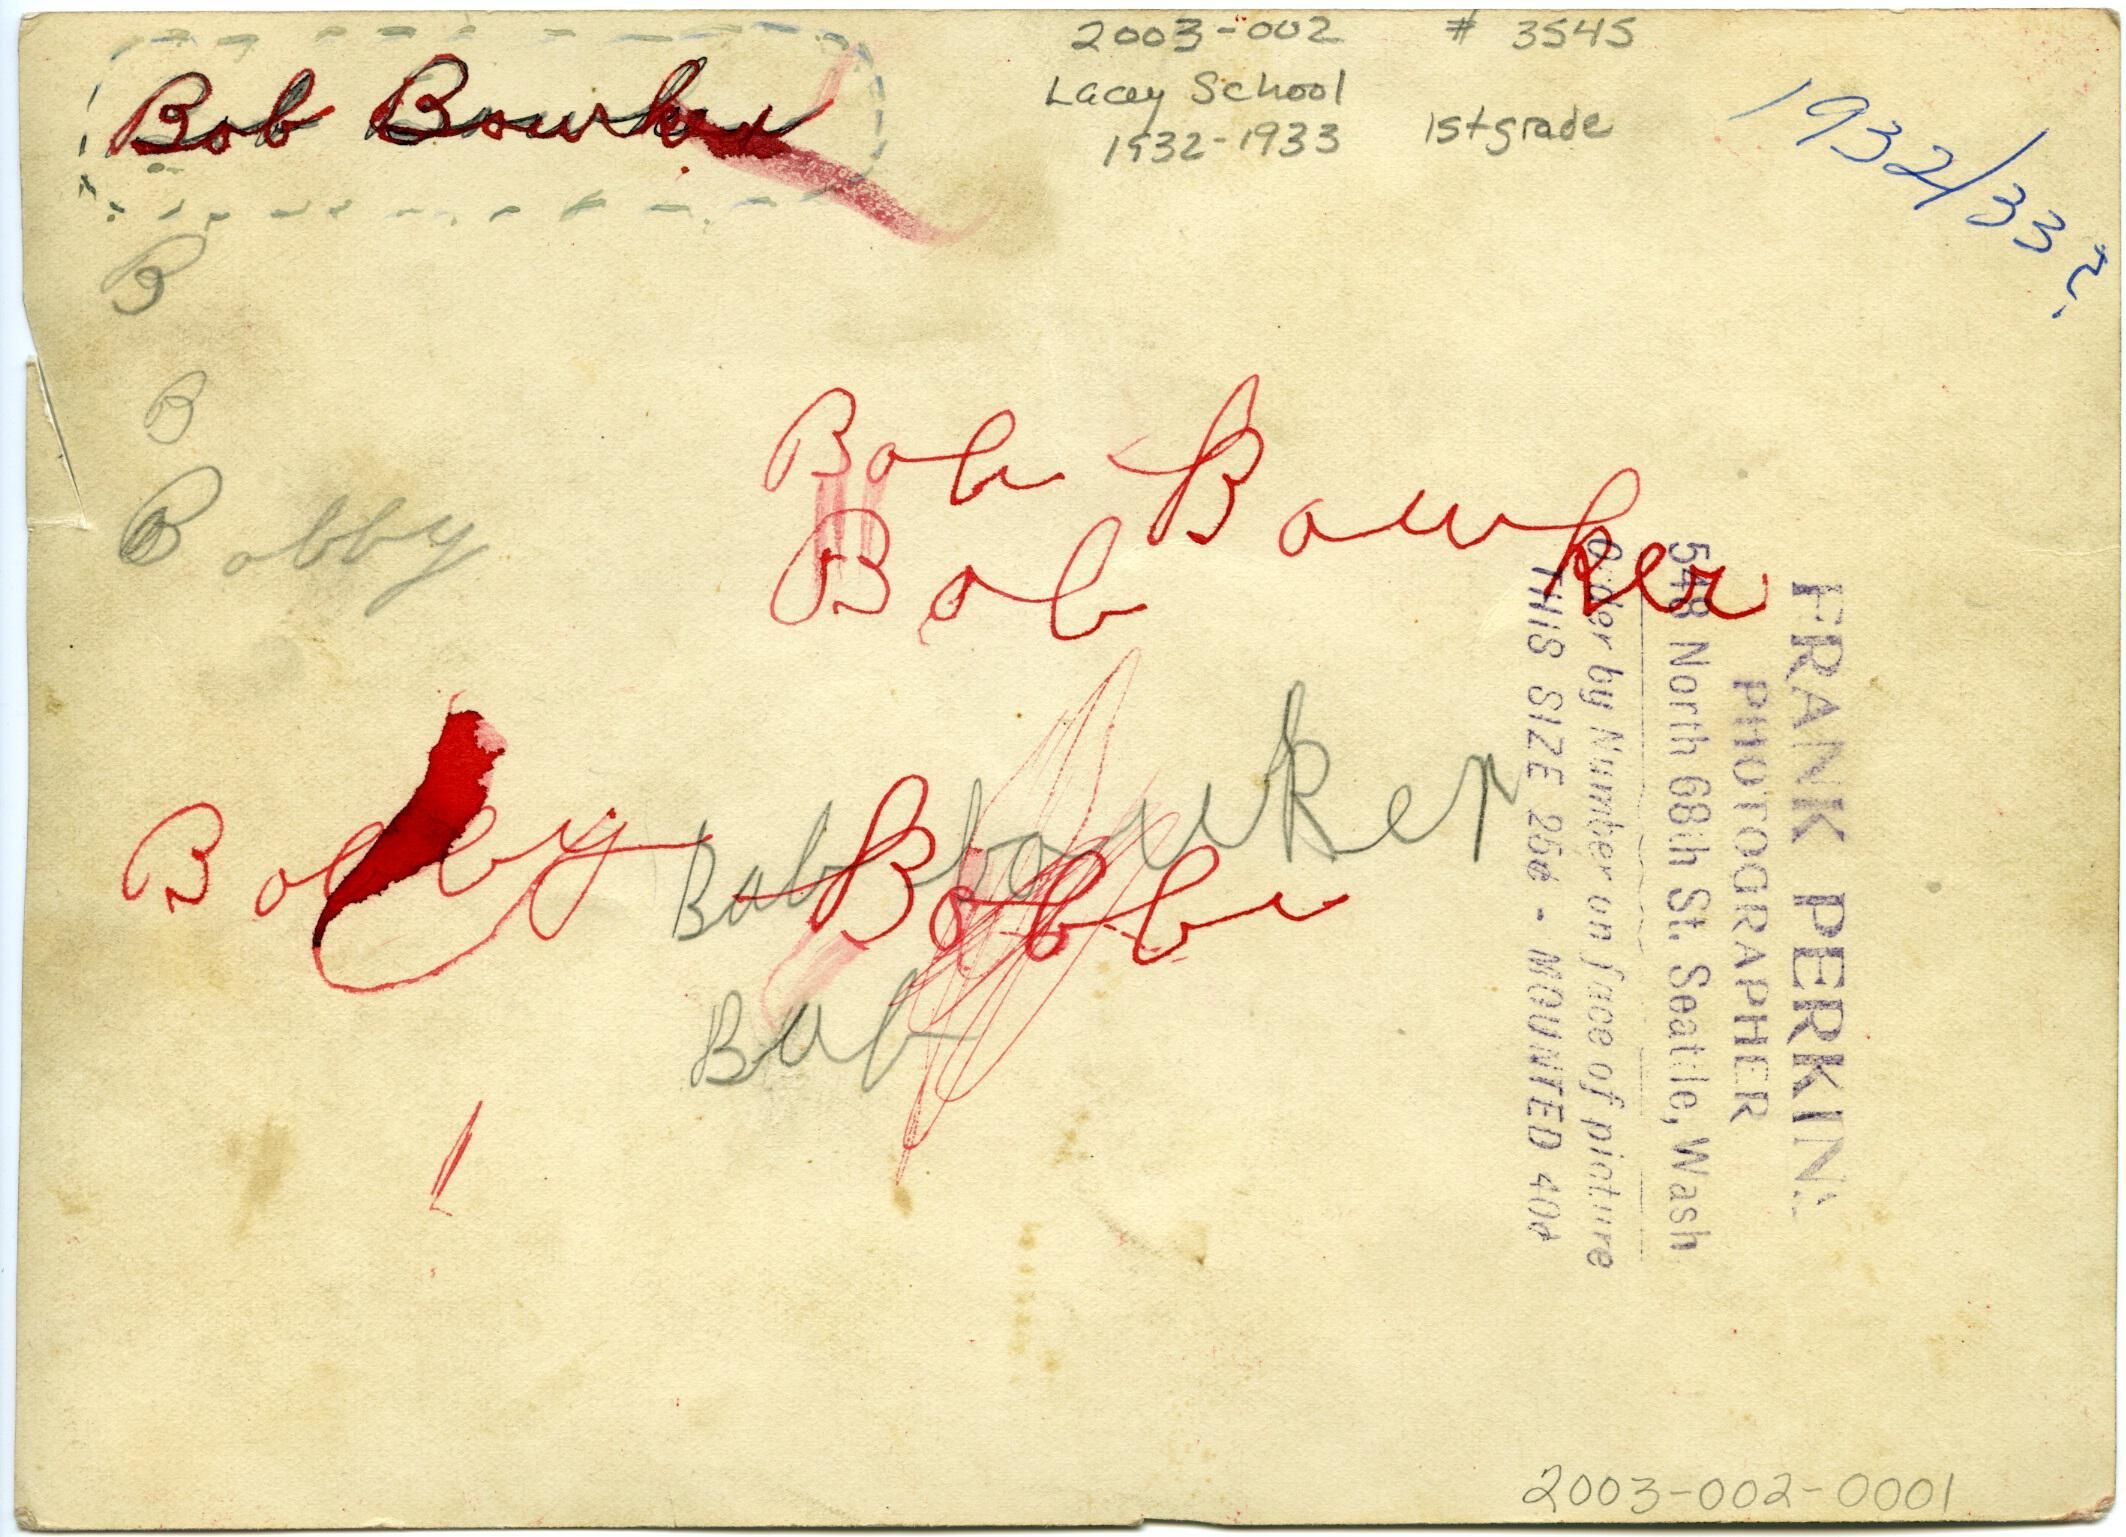 Bob Bowker
2003-002 # 3545
Lacey School
1932-1933 1st grade
1932/33?
B
B
Bobby
Bob Bowker
Bob
Bobby
Bob bowker
Bobb
Bob
FRANK PERKINS
PHOTOGRAPHER
548 North 68th St. Seattle, Wash
Order by Number on face of picture
THIS SIZE 25¢ - MOUNTED 40¢
2003-002-0001